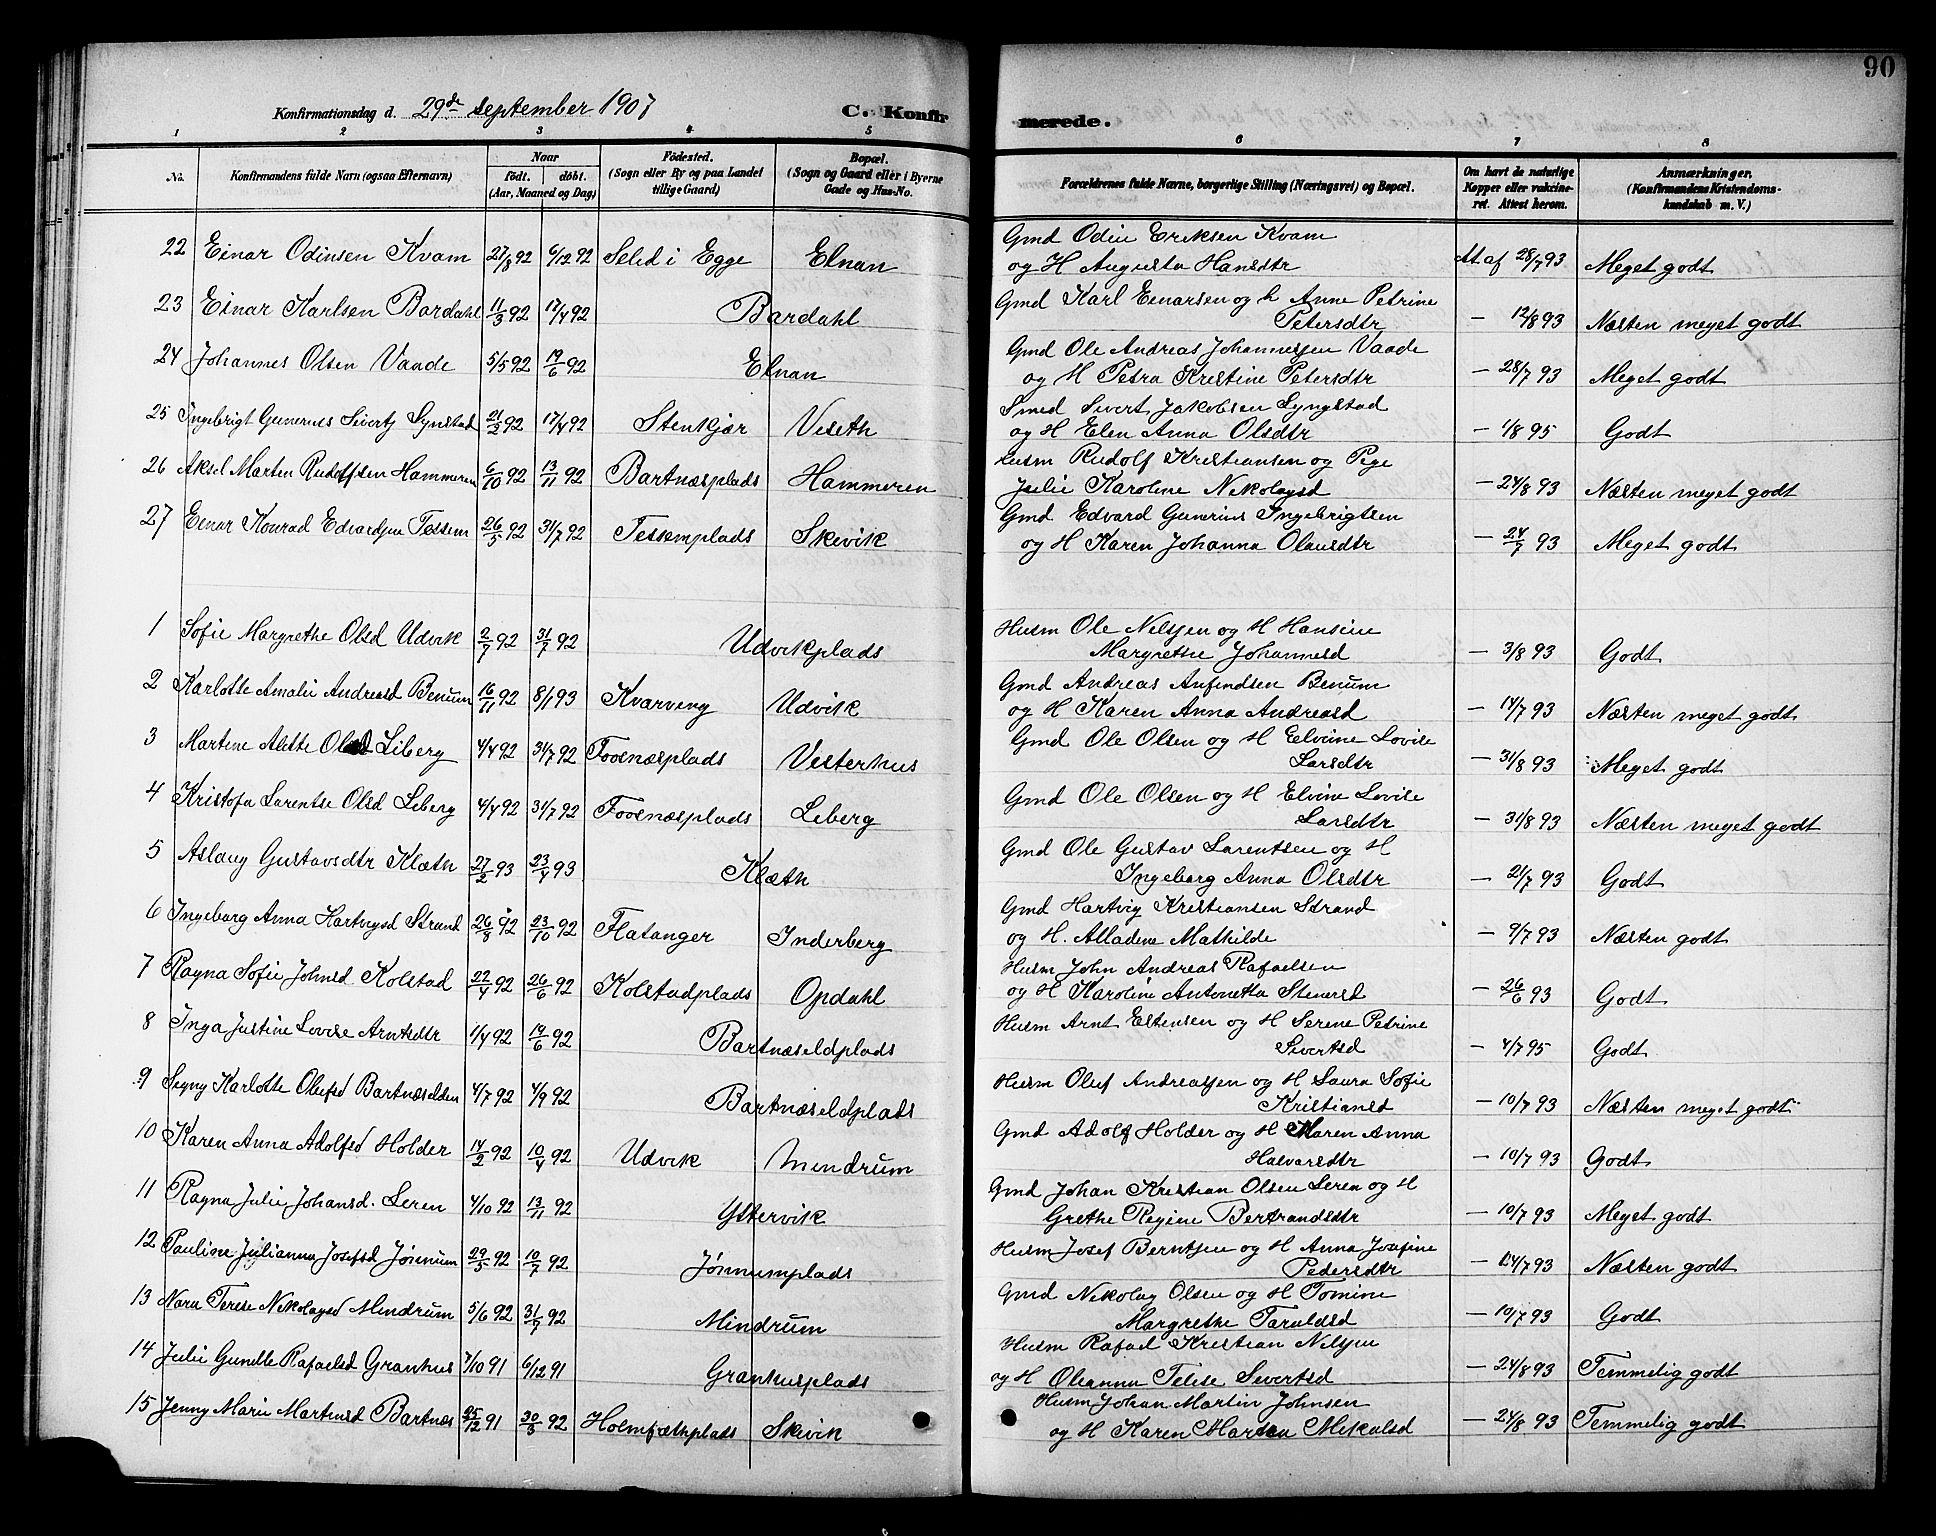 90
Konfirmationsdag d. 29de september 1907 C. Konfirmerede.
1 2 3 4 5 6 7 8
No. Konfirmandens fulde Navn (ogsaa Efternavn) Naar født. døbt. (Aar, Maaned og Dag) Fødested. (Sogn eller By og paa Landet tillige Gaard) Bopæl. (Sogn og Gaard eller i Byerne Gade og Hus-No. Forældrenes fulde Navne, borgerlige Stilling (Næringsvei) og Bopæl. Om havt de naturlige Kopper eller vakcineret. Attest herom. Anmærkninger. (Konfirmandens Kristendomskundskab m. V.)
22 Einar Odinsen Kvam 27/8 92 6/12 92 Selid i Egge Elnan Gmd Odin Eriksen Kvam
og H Augusta Hansdtr At af 28/7 93 Meget godt
23 Einar Karlsen Bardahl 11/3 92 17/4 92 Bardahl Gmd Karl Einarsen og h Anne Petrine
Petersdtr — 12/8 93 Næsten meget godt
24 Johannes Olsen Vaade 5/5 92 19/6 92 Elnan Gmd Ole Andreas Johannessen Vaade
og H Petra Kristine Petersdtr — 28/7 93 Meget godt
25 Ingebrigt Gunerius Sivertz Synstad 21/2 92 17/4 92 Stenkjær Viseth Smed Sivert Jakobsen Syngstad
og H Elen Anna Olsdtr — 1/8 95 Godt
26 Aksel Marten Rudolfsen Hammeren 6/10 92 13/11 92 Bartnæsplads Hammeren Husm Rudolf Kristiansen og Pige
Julie Karoline Nikolaysd — 24/8 93 Næsten meget godt
27 Einar Konrad Edvardsen Tessem 26/5 92 31/7 92 Tessemplads Skevik Gmd Edvard Gunerius Ingebrigtsen
og H Karen Johanna Olausdtr — 24/7 93 Meget godt
1 Sofie Margrethe Olsd Udvik 2/7 92 31/7 92 Udvikplads Husm Ole Nilsen og H Hansine
Margrethe Johannesd — 3/8 93 Godt
2 Karlotte Amalie Andreasd Benum 16/11 92 8/1 93 Kvarving Udvik Gmd Andreas Anfindsen Benum
og H Karen Anna Andreasd — 14/7 93 Næsten meget godt
3 Martine Alette Olsd Liberg 4/4 92 31/7 92 Foosnæsplads Vesterhus Gmd Ole Olsen og H Elvine Lovise
Larsdtr — 31/8 93 Meget godt
4 Kristofa Larentse Olsd Liberg 4/4 92 31/7 92 Foosnæsplads Leberg Gmd Ole Olsen og H Elvine Lovise
Larsdtr — 31/8 93 Næsten meget godt
5 Aslaug Gustavsdtr Klæth 27/2 93 23/4 93 Klæth Gmd Ole Gustav Larentsen og H
Ingeborg Anna Olsdtr — 21/7 93 Godt
6 Ingeborg Anna Hartvigsd Strand 26/8 92 23/10 92 Flatanger Inderberg Gmd Hartvig Kristiansen Strand
og H. Alladine Mathilde — 9/7 93 Næsten godt
7 Ragna Sofie Johnsd Kolstad 22/4 92 26/6 92 Kolstadplads Opdahl Husm John Andreas Rafaelsen
og H Karoline Antonetta Stenersd — 26/6 93 Godt
8 Inga Justine Lovise Arntsdtr 1/4 92 19/6 92 Bartnæseldplads Husm Arnt Estensen og H Serene Petrine
Sivertsd — 4/7 95 Godt
9 Signy Karlotte Olufsd Bartnæselden 4/7 92 4/9 92 Bartnæseldplads Husm Oluf Andreassen og H Laura Sofie
Kristiansd — 10/7 93 Næsten meget godt
10 Karen Anna Adolfsd Holder 14/2 92 10/4 92 Udvik Mindrum Gmd Adolf Holder og H Karen Anna
Halvarsdtr — 10/7 93 Godt
11 Ragna Julie Johansd. Leren 4/10 92 13/11 92 Ystervik Gmd Johan Kristian Olsen Leren og H
Grethe Regine Bertrandsdtr — 10/7 93 Meget godt
12 Pauline Julianna Josefsd Jørnum 29/5 92 10/7 92 Jørnumplads Husm Josef Berntsen og H Anna Josefine
Pedersdtr — 14/7 93 Næsten godt
13 Nara Terese Nikolaysd Mindrum 5/6 92 31/7 92 Mindrum Gmd Nikolay Olsen og H Tomine
Margrethe Taraldsd — 10/7 93 Godt
14 Julie Gunille Rafaelsd Granhus 7/10 91 6/12 91 Granhusplads Husm Rafael Kristian Nilsen
og H Oleanna Telise Sivertsd — 24/8 93 Temmelig godt
15 Jenny Marie Martinsd Bartnæs 25/12 91 30/3 92 Holmfæthplads Skivik Husm Johan Martin Johnsen
og H Karen Marsea Mikalsd — 24/8 93 Temmelig godt